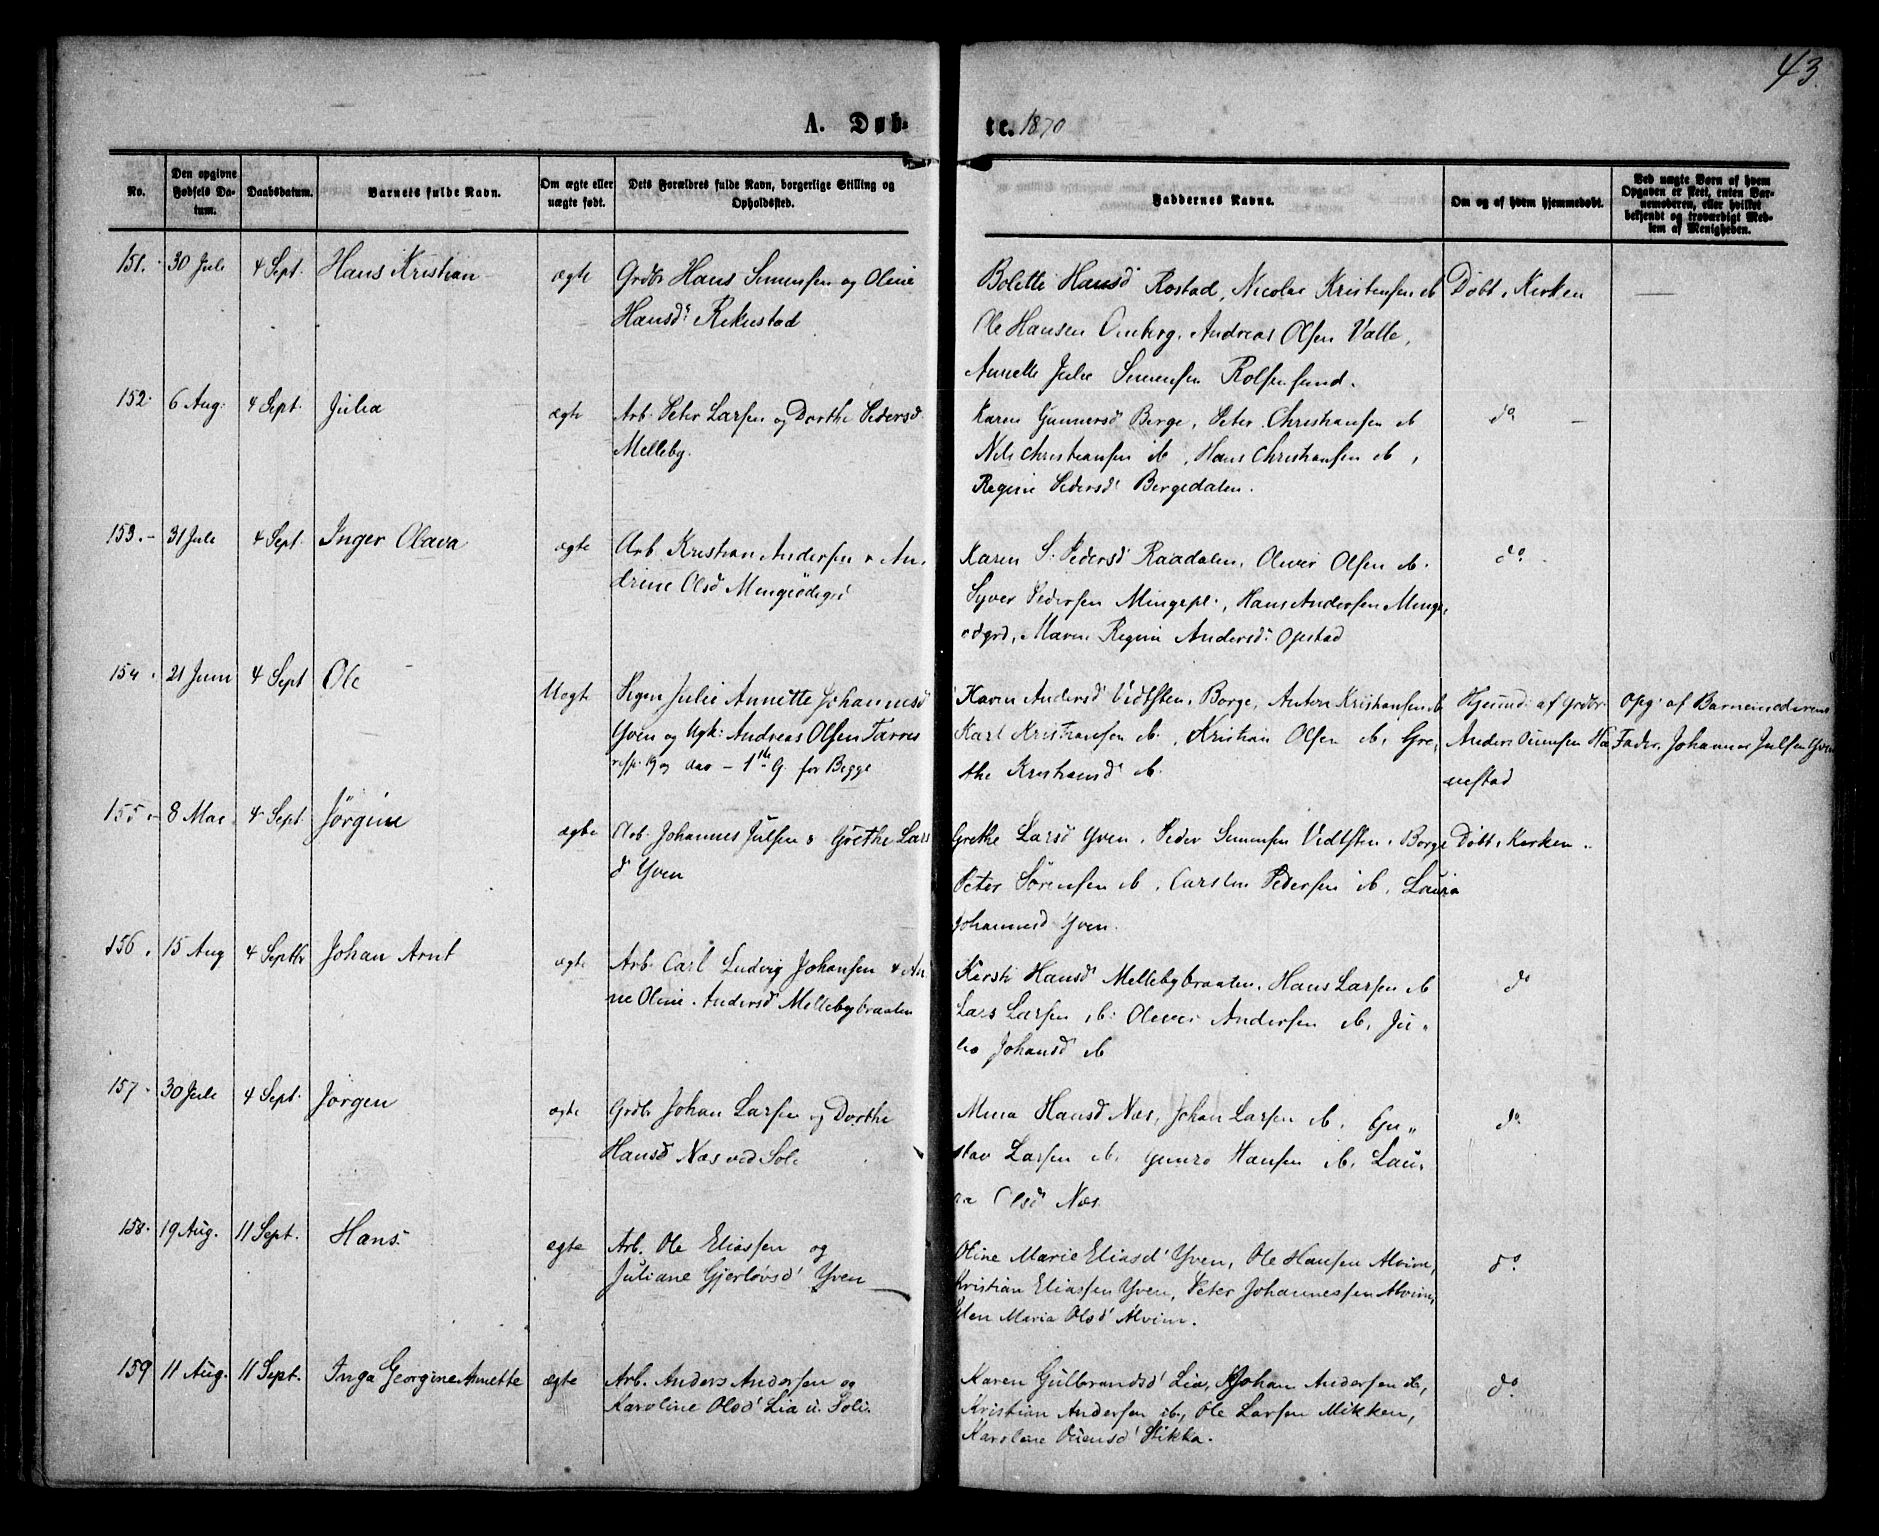 43.
A. Døb- te. 1870
No.
Den opgivne Fødsels Da-tum.
Daabsdatum.
Barnets fulde Navn.
Om ægte eller uægte født.
Dets Forældres fulde Navn, borgerlige Stilling og Opholdssted.
Faddernes Navne.
Om og af hvem hjemmedøbt.
Ved uægte Børn af hvem Opgaven er skeet, enten Bar-nemoderen, eller hvilket bekjendt og troværdigt Med-lem af Menigheden.
151. 30 Juli 4 Sept. Hans Kristian ægte Grdbr Hans Simensen og Oline
Hansd: Rekustad
Bolette Hansd Rostad, Nicolai Kristensen ib Døbt i Kirken
Ole Hansen Omberg, Andreas Olsen Valle,
Annette Julie Simensen Rolfsensund.
152. 6 Aug. 4 Sept. Julia ægte Arb. Peter Larsen og Dorthe Pedersd
Melleby.
Karen Gunnersd Berge, Peter Christiansen ib do
Nils Christiansen ib, Hans Christiansen ib,
Regine Pedersd Bergedalen.
153. 31 Juli 4 Sept. Inger Olava ægte Arb. Kristian Andersen & An-
drine Olsd Mingeødegrd
Karen S. Pedersd Raadalen, Oliver Olsen ib. do.
Syver Pedersen Mingepl., Hans Andersen Minge
ødgrd, Maren Regine Andersd: Opstad
154. 21 Juni 4 Sept Ole Uægte Pigen Julie Annette Johannesd
Yven og Ugk: Andreas Olsen Tarres
resp. 19 og aar – 1ste G. for Begge
Karen Andersd Vidtsten, Borge, Anton Kristiansen ib Hjemmd: af Grdbr. Opg: af Barnemoderens
Karl Kristiansen ib., Kristian Olsen ib, Gre- Anders Fader, Johannes Julsen Yven
the Kristiansd ib. nestad
155. 8 Mai 4 Sept Jørgine ægte Arb. Johannes Julsen & Grethe Lars
d Yven
Grethe Larsd Yven, Peder Simensen Vidtsten, Borge Døbt i Kirken.
Peter Sørensen ib, Carsten Pedersen ib, Laura
Johannesd Yven.
156. 15 Aug 4 Septbr Johan Arnt ægte Arb. Carl Ludvig Johansen & An-
ne Oline Andersd Mellebybraaten
Kersti Hansd Mellebybraaten, Hans Larsen ib do
Lars Larsen ib. Oliver Andersen ib, Ju-
lia Johansd ib
157. 30 Juli 4 Sept. Jørgen ægte Grdbr Johan Larsen og Dorthe
Hansd Næs ved Soli
Mina Hansd Næs, Johan Larsen ib, Gu-
stav Larsen ib. Hansen ib, Lau- do
ra Olsd Næs
158. 19 Aug. 11 Sept. Hans. ægte Arb. Ole Eliassen og
Juliane Gjerløvsd Yven
Oline Marie Eliasd Yven, Ole Hansen Alvim, do.
Kristian Eliassen Yven, Peter Johannessen Alvim,
Elen Maria Olsd Alvim.
159 11 Aug. 11 Sept. Inga Georgine Annette ægte Arb. Anders Andersen og
Karoline Olsd Lia u. Soli.
Karen Gulbrandsd Lia, Johan Andersen ib, do.
Kristian Andersen ib, Ole Larsen Mikken,
Karoline Ouensd Stikka.